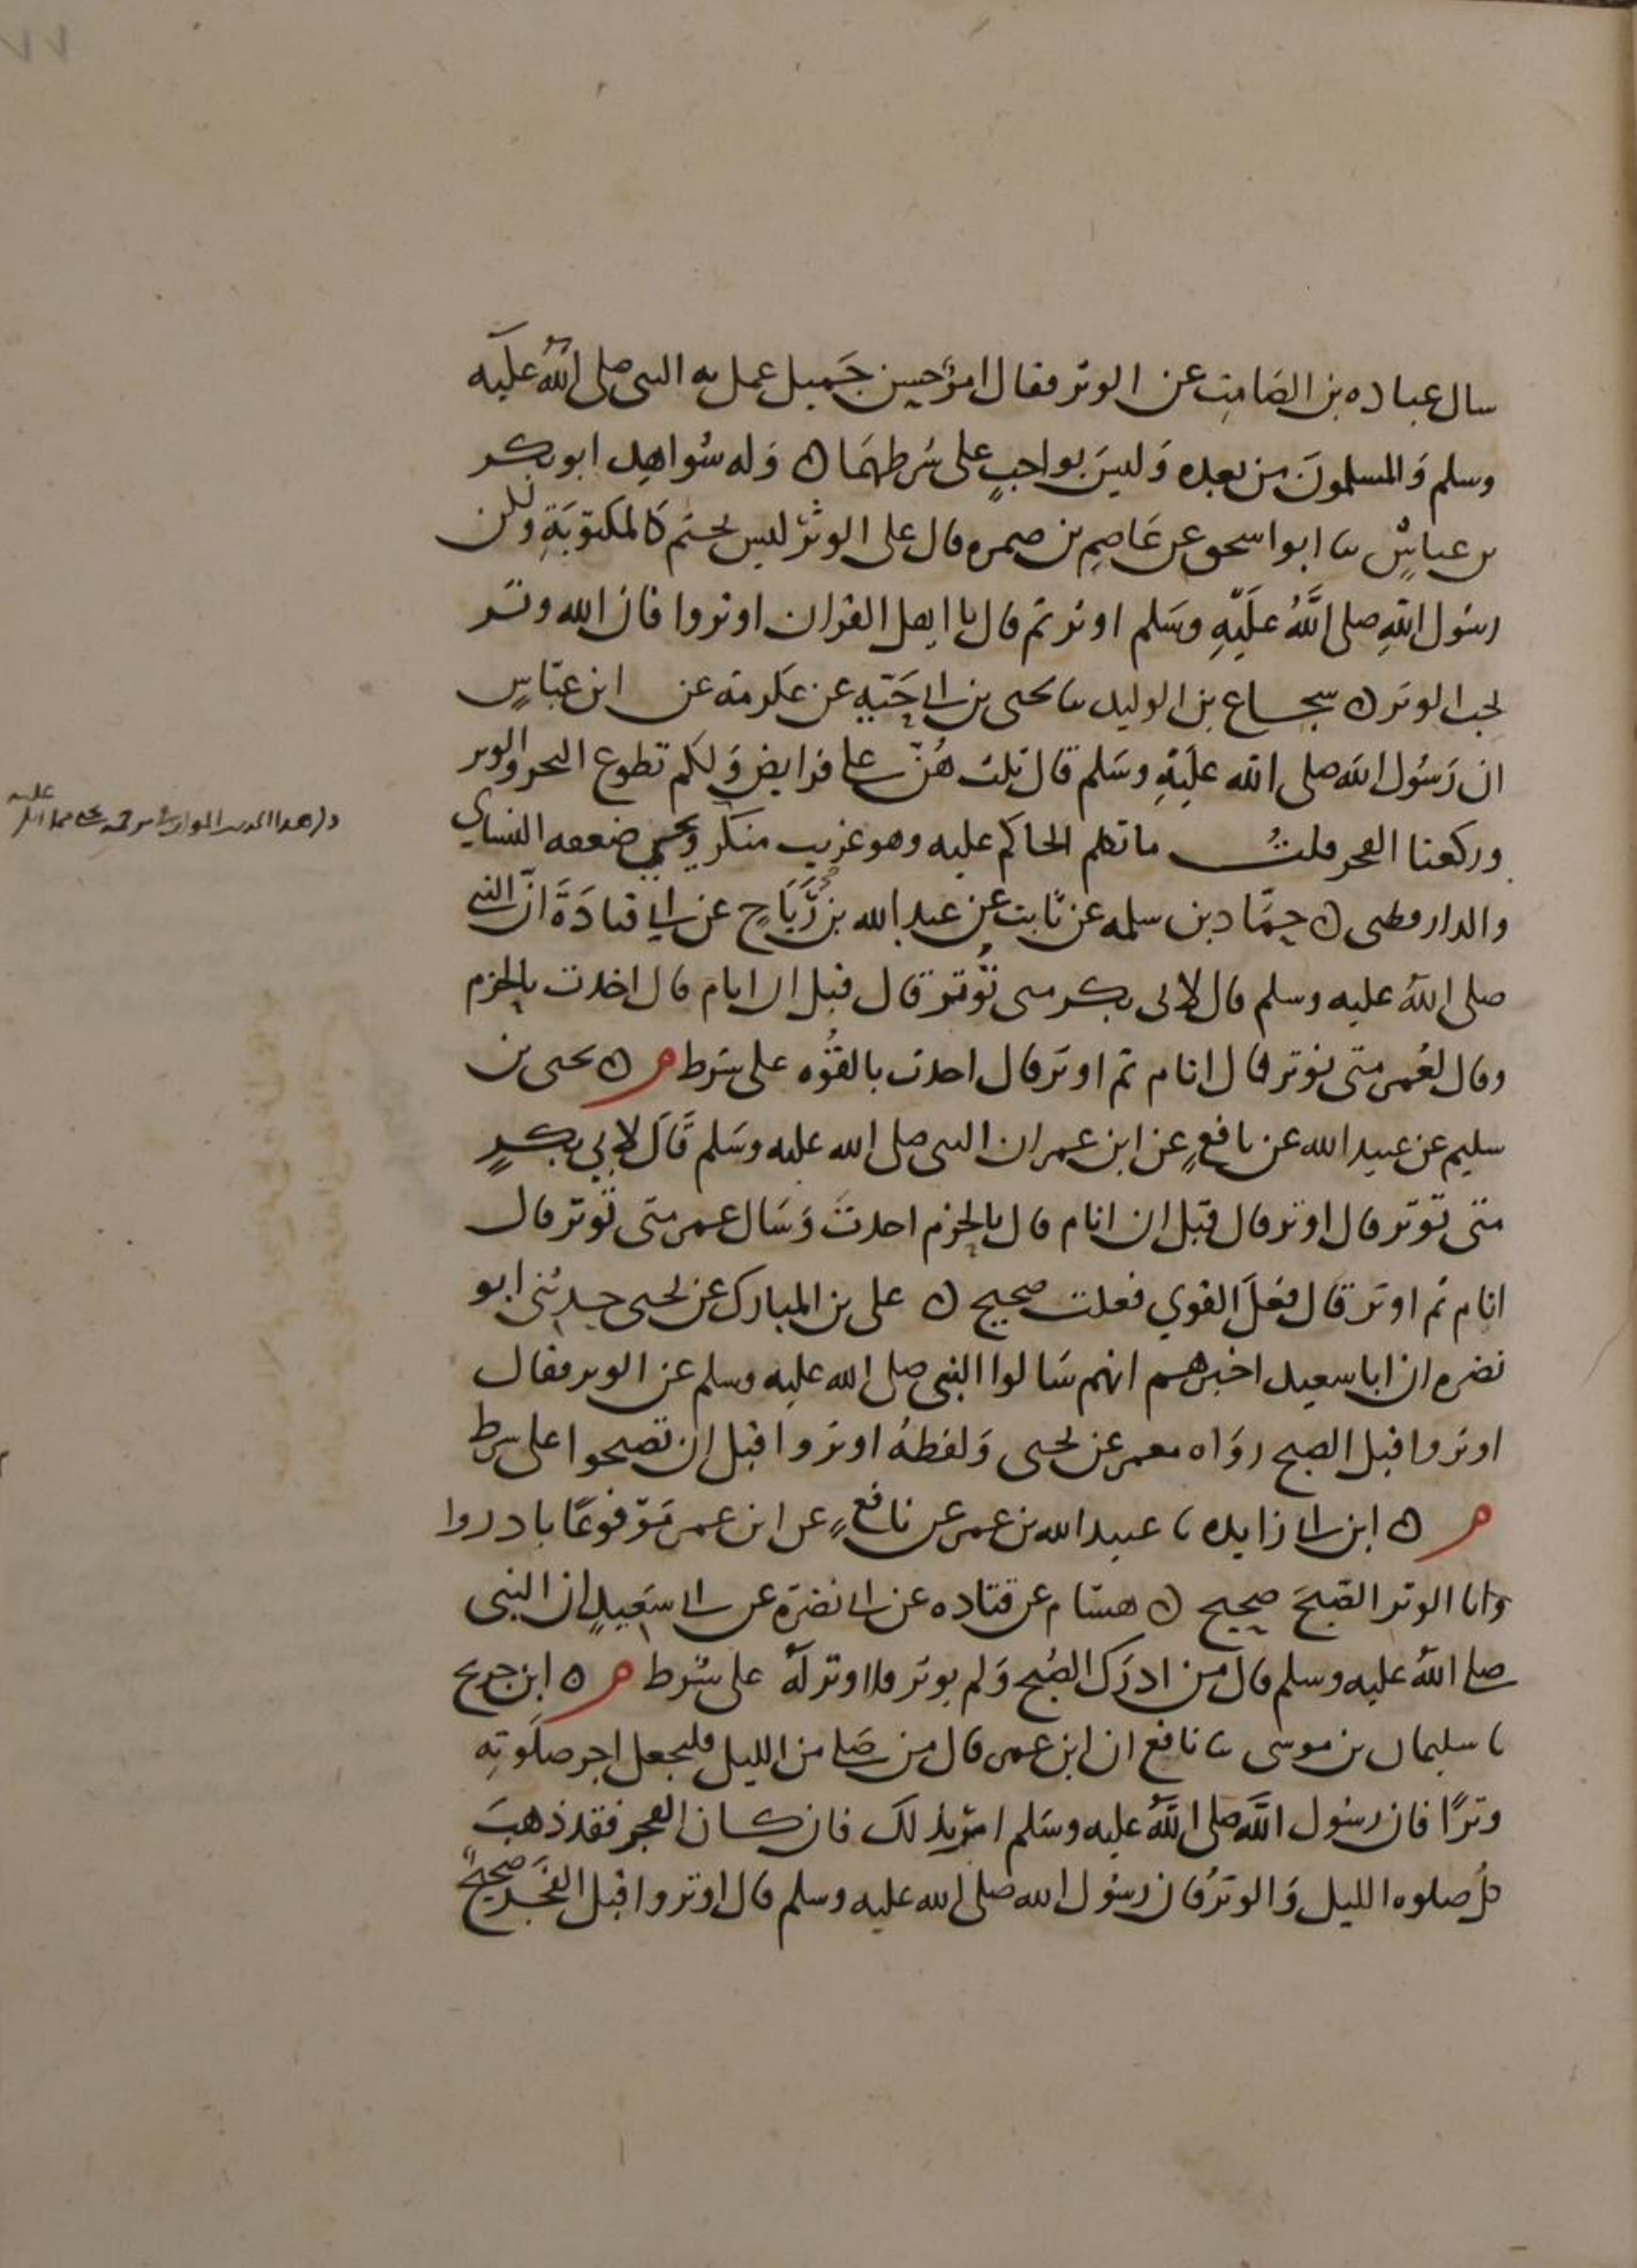 سال عباده بن الصامت عن الوتر فقال امر حسن جميل عمل به النبى صلى الله عليه
وسلم والمسلمون من بعده وليس بواجب على شرطهما ه وله شواهد ابو بكر
بن عياش ثنا ابو اسحق عن عاصم بن ضمره قال على الوتر ليس بحتم كالمكتوبة ولكن
رسول الله صلى الله عليه وسلم اوتر ثم قال يا اهل القران اوتروا فان الله وتر
يحب الوتر ه شجاع بن الوليد ثنا يحيى بن ابي حية عن عكرمة عن ابن عباس
ان رسول الله صلى الله عليه وسلم قال ثلث هن على فرايض ولكم تطوع النحر والوتر
وركعتا الفجر قلت ما تكلم الحاكم عليه وهو غريب منكر ويحيى ضعفه النساي
والدارقطنى ه حماد بن سلمه عن ثابت عن عبد الله بن رباح عن ابي قتادة ان النبي
صلى الله عليه وسلم قال لابى بكر متى توتر قال قبل ان انام قال اخذت بالحزم
وقال لعمر متى توتر قال انام ثم اوتر قال اخذت بالقوه على شرط م ه يحيى بن
سليم عن عبيد الله عن نافع عن ابن عمر ان النبى صلى الله عليه وسلم قال لابي بكر
متى توتر قال اوتر قال قبل ان انام قال بالحزم اخذت وسال عمر متى توتر قال
انام ثم اوتر قال فعل القوي فعلت صحيح ه على بن المبارك عن يحيى حدثنى ابو
نضره ان ابا سعيد اخبرهم انهم سالوا النبى صلى الله عليه وسلم عن الوتر فقال
اوتروا قبل الصبح رواه معمر عن يحيى ولفظه اوتروا قبل ان تصبحوا على شرط
م ه ابن ابي زايده ثنا عبيد الله بن عمر عن نافع عن ابن عمر مرفوعا بادروا
وانا الوتر الصبح صحيح ه هشام عن قتاده عن ابي نضرة عن ابي سعيد ان النبى
صلى الله عليه وسلم قال من ادرك الصبح ولم يوتر فلا وتر له على شرط م ه ابن جريج
ثنا سليمان بن موسى ثنا نافع ان ابن عمر قال من صلى من الليل فليجعل اخر صلوته
وترا فان رسول الله صلى الله عليه وسلم امر بذلك فان كان الفجر فقد ذهب
كل صلوه الليل والوتر فان رسول الله صلى الله عليه وسلم قال اوتروا قبل الفجر صحيح